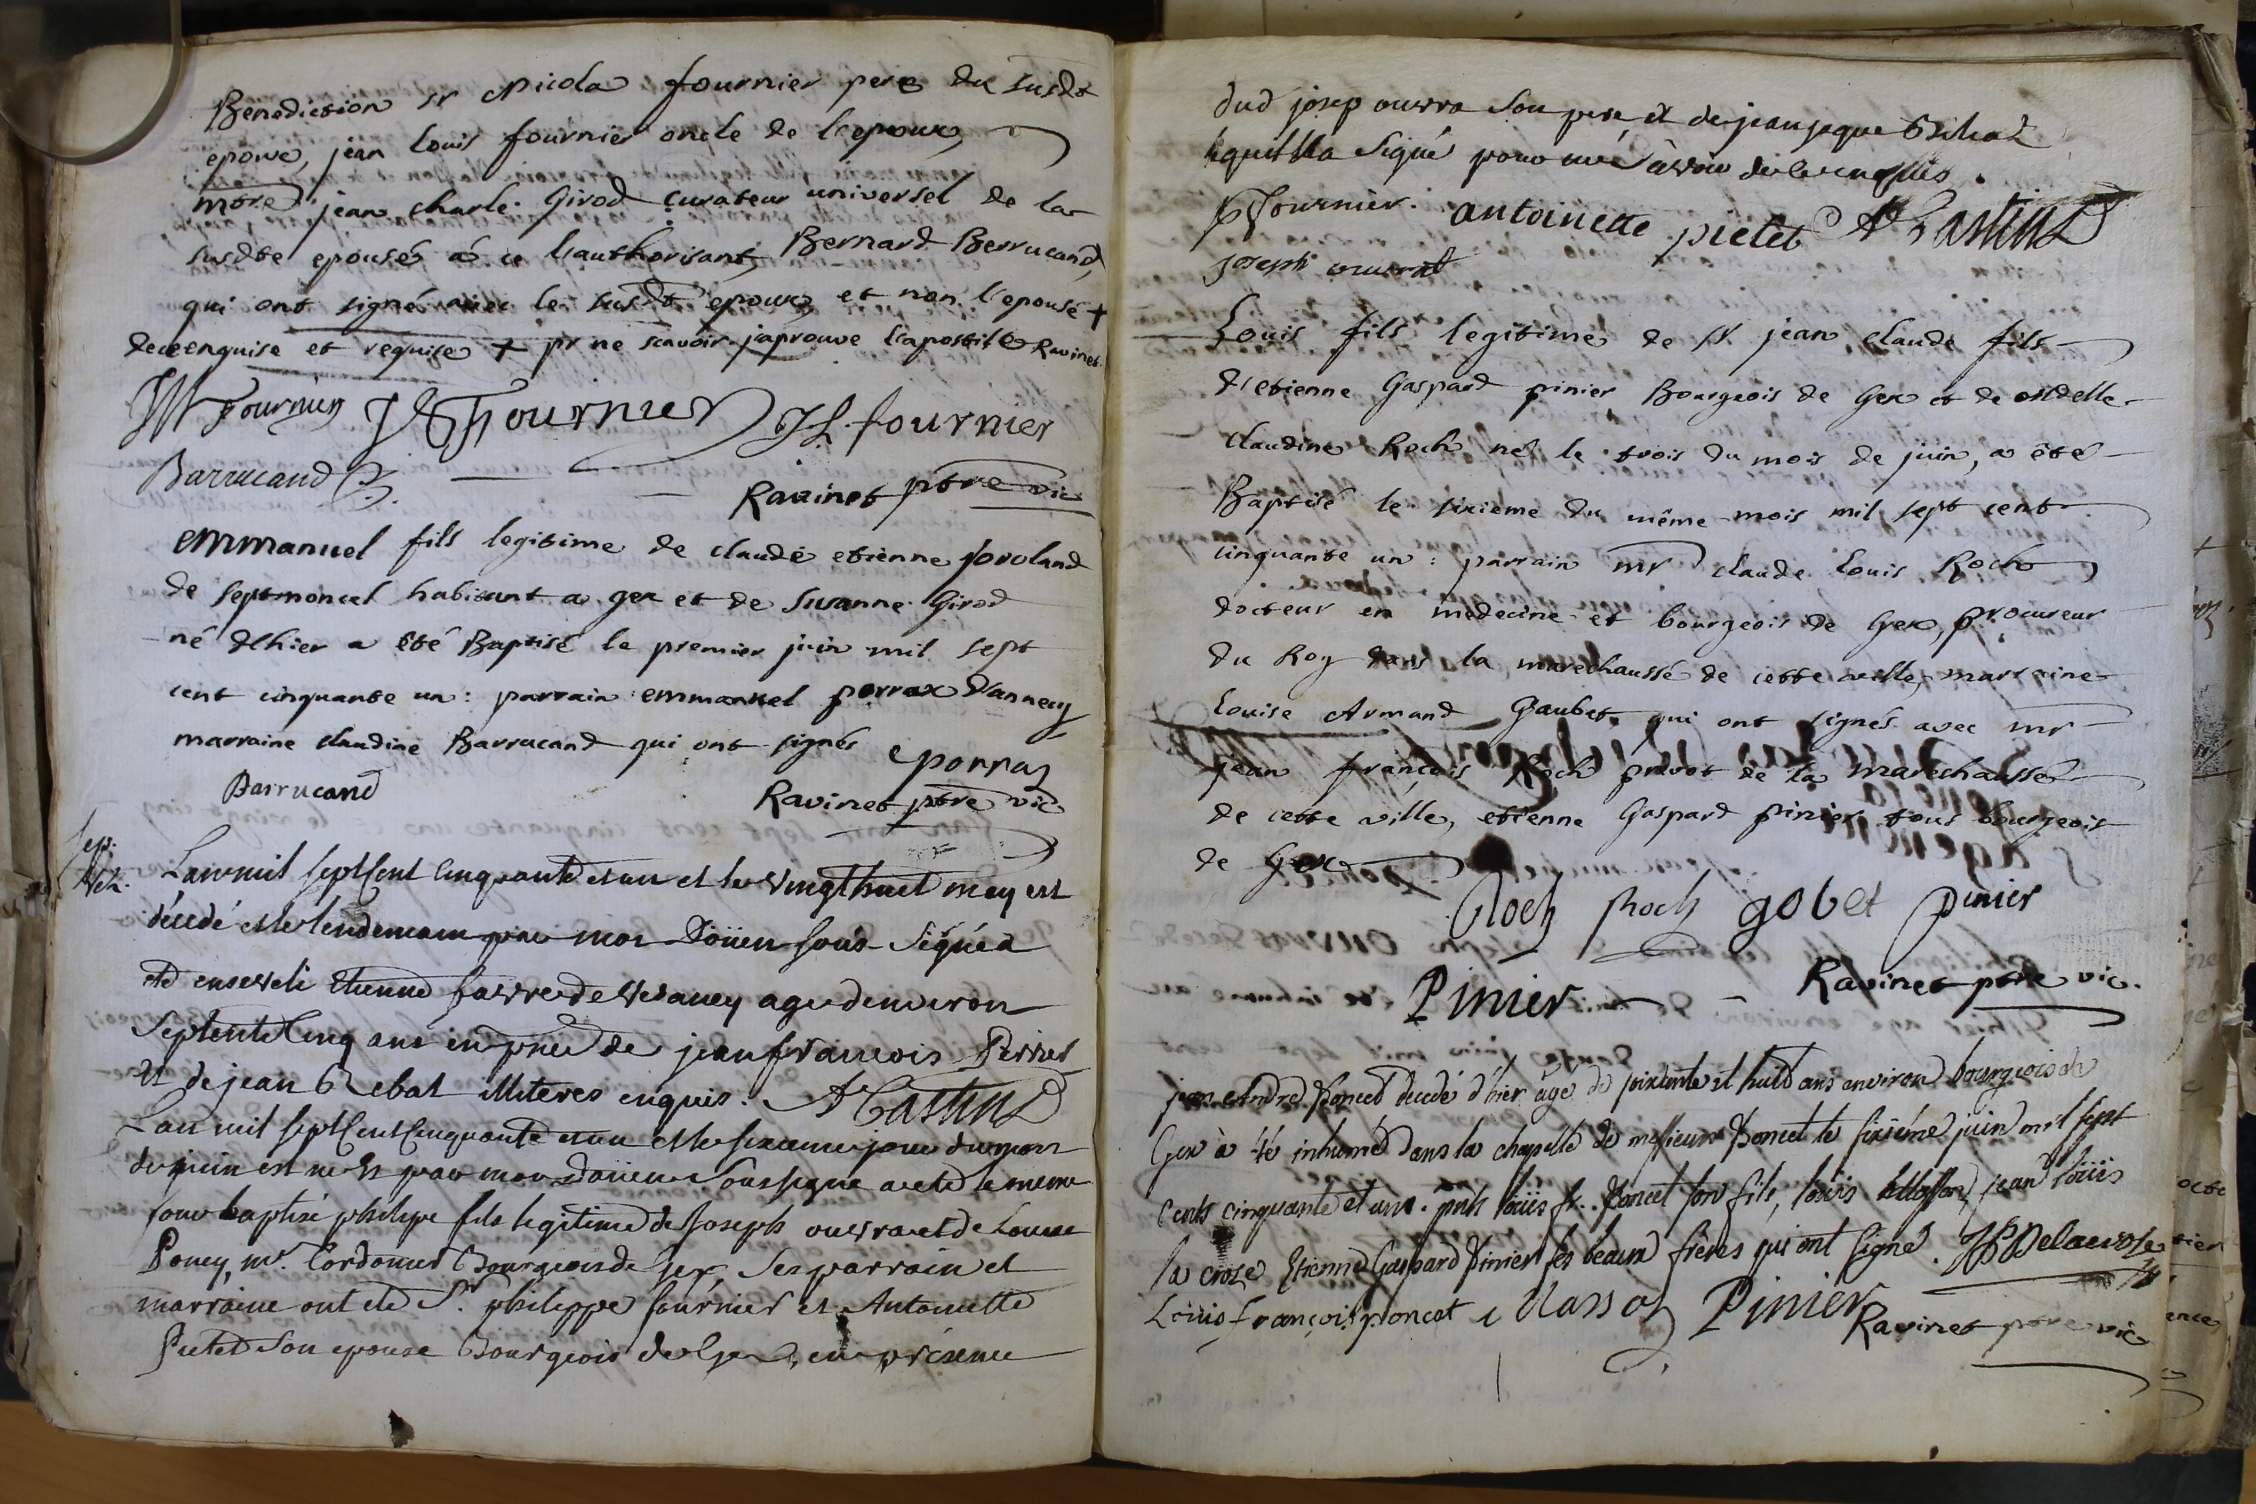 Benediction sr Nicola fournier pere du susdt
epoux, jean louis fournier oncle de l'epoux,
jean charle Girod curateur universel de la
susdte epouse à ce l'authorisant, Bernard Berrucand,
qui ont signé avec le susdt epoux, et non l'epouse +
de ce enquise et requise + pr ne scavoir japrouve l'apostile Ravinet
Fournier Fournier JL fournier
Barrucand
Ravinet ptre vic
emmanuel fils legitime de claude etienne
de septmoncel habitant a gex et de Susanne Girod
né d'hier a été Baptisé le premier juin mil sept
cent cinquante un : parrain emmanuel porrax d'annecy
marraine claudine Barrucand qui ont signés porraz
Barrucand
Ravinet ptre vic
sep.
L'an mil sept cent cinquante et un et le vingt huit mey est
décedé et le lendemain par moi Doïen sous Signé a
eté enseveli Etienne favre de vesancy agé denviron
septente cinq ans en pnce de jean francois Perret
et de jean illiteres enquis. A Castin
L'an mil sept cent cinquante et un et le sixieme jour du mois
de juin est né et par moy Doïen soussigné a eté le meme
jour baptisé philipe fils legitime de Joseph ouvra et de Louise
Poncy, mr. Cordonier Bourgeois de Gex, Ses parrain et
marraine ont eté Sr philippe fournier et Antoinette
Pictet son epouse Bourgeois de Gex, en présence
dud josep ouvra son pere, et de jean jaque
signé pour
p fournier. antoinette pictet A Castin
joseph ouvrat
Louis fils legitime de sr jean claude fils
d'etienne Gaspard pinier Bourgeois de Gex et de mdelle
claudine Roch né le trois du mois de juin, a été
Baptisé le sixieme du même mois mil sept cent
cinquante un : parrain mr claude Louis Roch
docteur en medecine et bourgeois de Gex, procureur
du Roy dans la marechaussé de cette ville, marraine
Louise Armand Gaubet qui ont signés avec mr
jean françois Roch prevot de la marechaussé
de cette ville, etienne Gaspard pinier tous bourgeois
de Gex
Roch Roch gobet pinier
Pinier
Ravinet ptre vic.
jean André Poncet decedé d'hier âgé de soixante et huit ans environ bourgeois de
Gex à été inhumé dans la chapelle de messieurs Poncet le sixiéme juin mil sept
cents cinquante et un. pnts loüis fr. Poncet son fils, loüis jean loüis
la croze Etienne Gaspard Pinier ses beaux frères qui ont signé. Delacroze
Louis françois poncet Pinier
Ravinet ptre vic